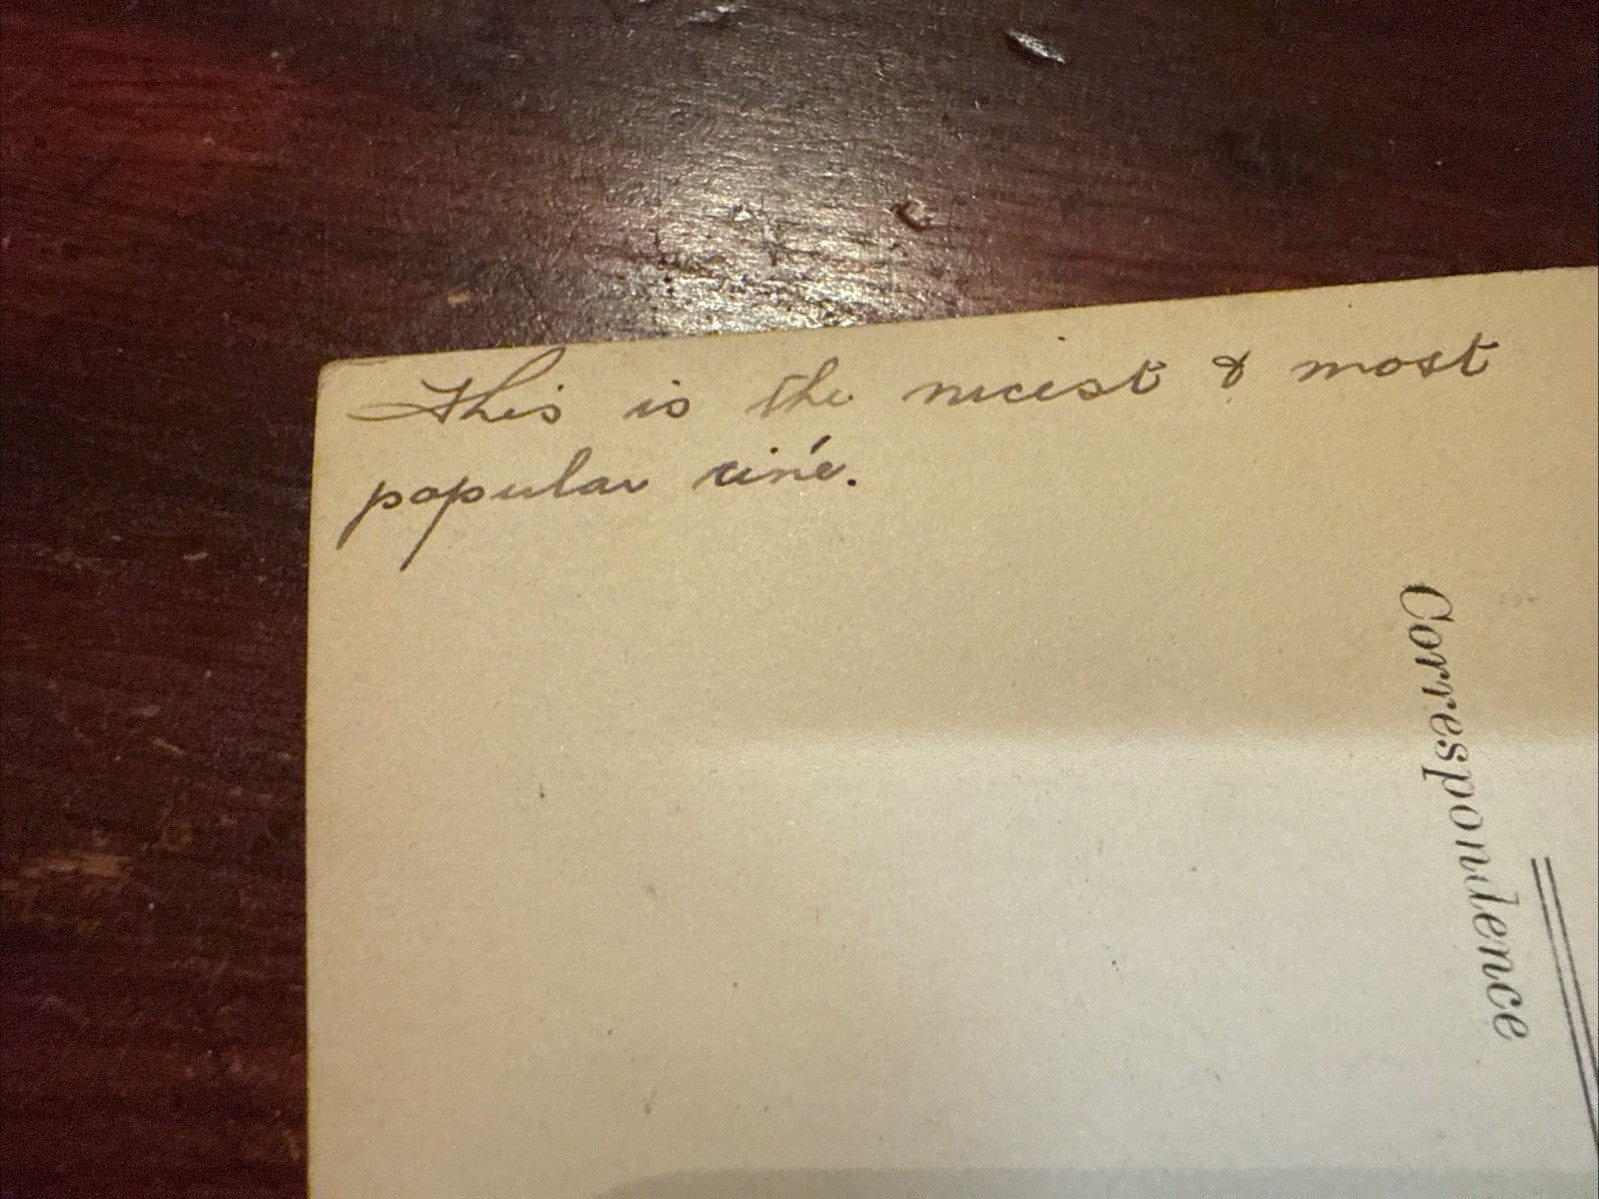 This is the nicest & most
popular ciné.
Correspondence